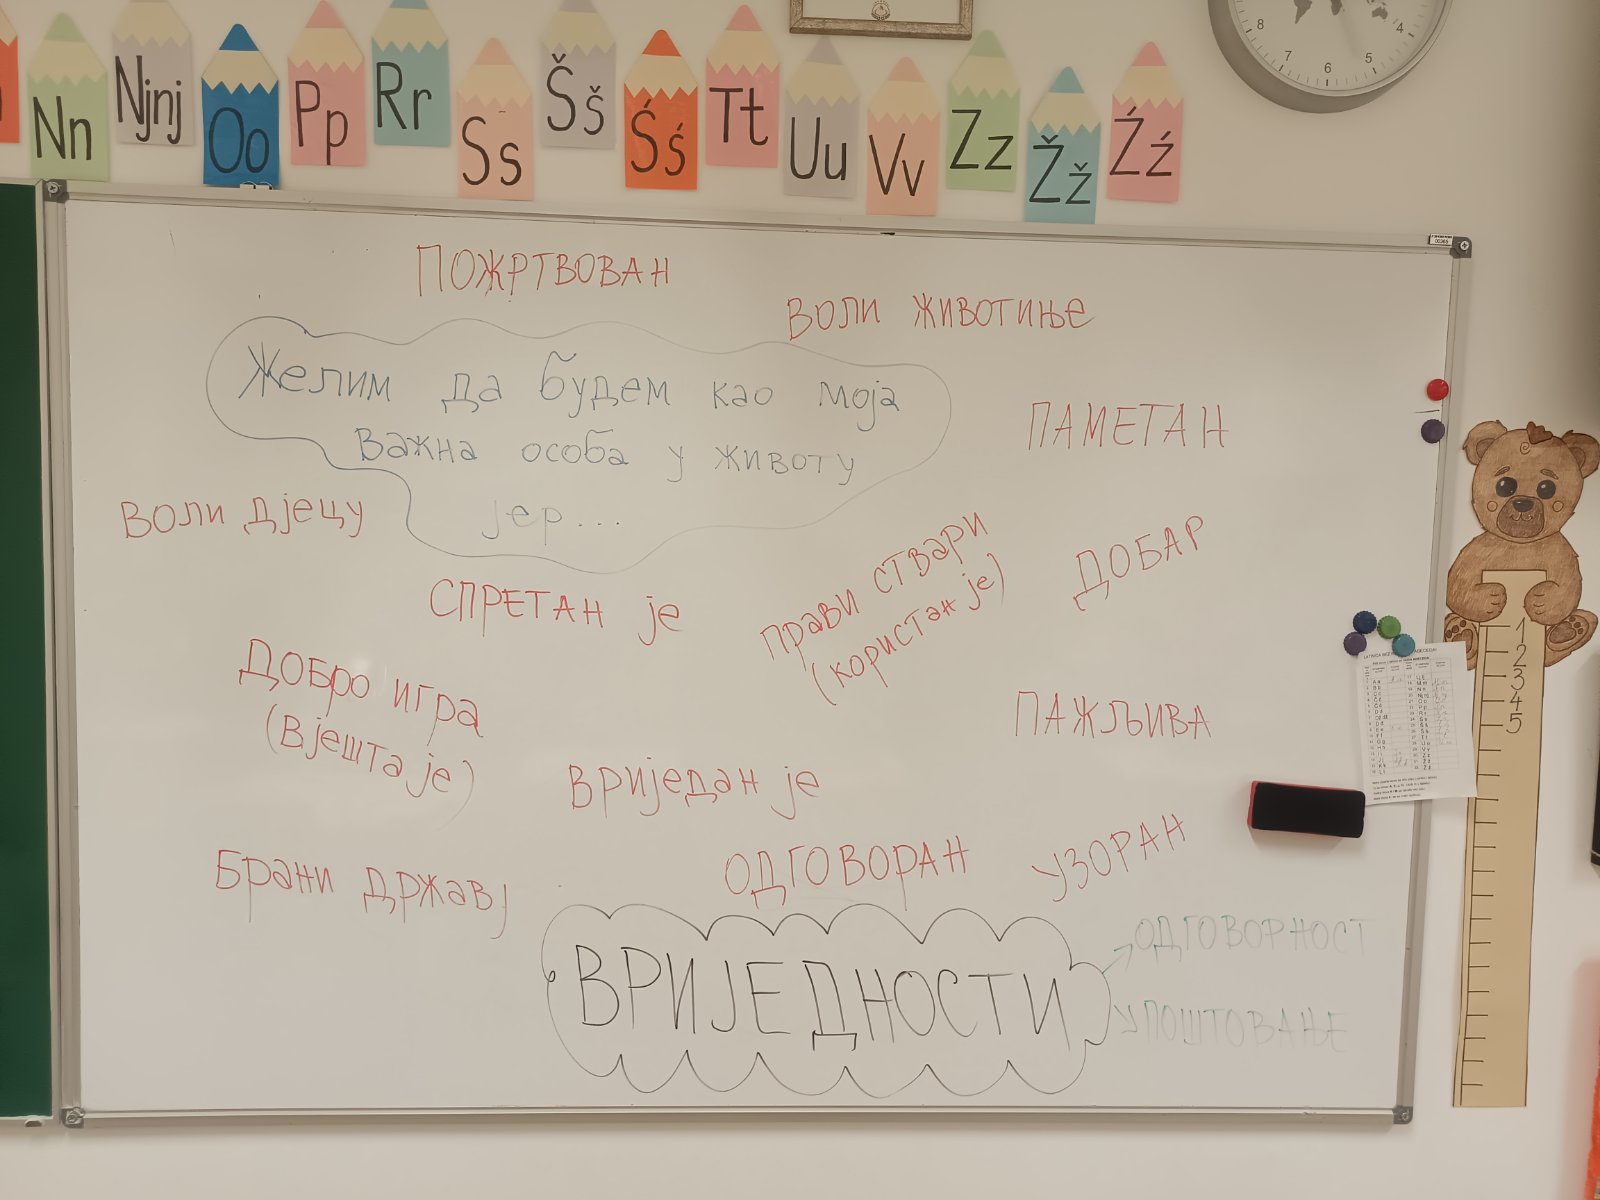 Nn Njnj Oo Pp Rr Ss Šš Śś Tt Uu Vv Zz Žž Źź
8 7 6 5 4
ПОЖРТВОВАН
ВОЛИ ЖИВОТИЊЕ
Желим да будем као моја
важна особа у животу
јер...
ПАМЕТАН
ВОЛИ ДЈЕЦУ
СПРЕТАН је
прави ствари
(користан је)
ДОБАР
ДОБРО ИГРА
(Вјешта је)
ПАЖЉИВА
ВРИједан је
Брани државу
ОДГОВОРАН
УЗОРАН
ВРИЈЕДНОСТИ
ОДГОВОРНОСТ
ПОШТОВАЊЕ
1
2
3
4
5